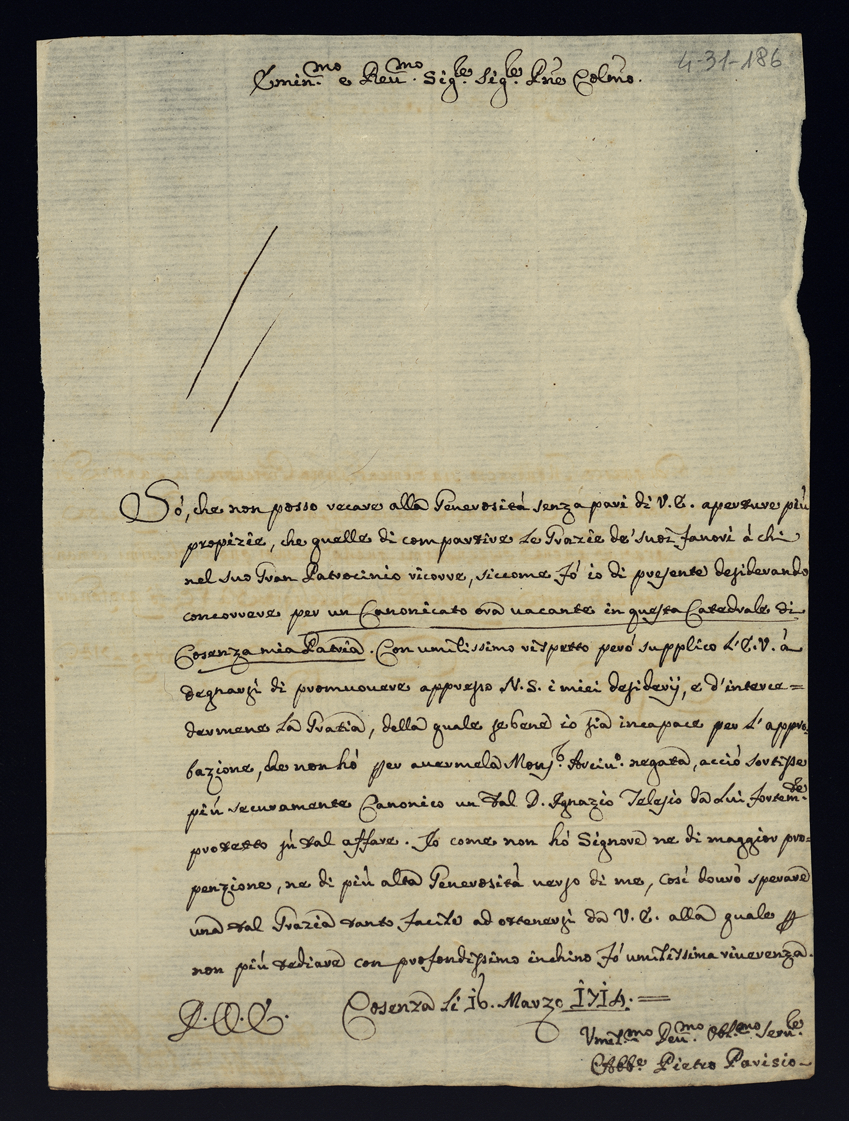 4-31-186
Emin.mo e Reu.mo Sig.re Sig.re Pne Colmo.
Só, che non posso recare alla Generositá senza pari di V. E. aperture piú
propizie, che quelle di compartire le Grazie de' suoi favori á chi
nel suo Gran Patrocinio ricorre, siccome fó io di presente desiderando
concorrere per un Canonicato ora uacante in questa Catedrale di
Cosenza mia Patria. Con umilissimo rispetto peró supplico l'E. V. á
degnarsi di promuouere appresso N. S. i miei desiderij, e d'interce=
dermene la Gratia, della quale se bene io sia incapace per l'appro=
bazione, che non hó per auermela Monsr. Arciuo. negata, acció sortisse
piú securamente Canonico un tal D. Ignazio Telesio da lui fortemte.
protetto in tal affare. Io come non hó Signore ne di maggior pro=
penzione, ne di piú alta Generositá uerso di me, cosí douró sperare
una tal Grazia tanto facile ad ottenersi da V. E. alla quale p
non piú tediare con profondissimo inchino fó umilissima riuerenza.
Cosenza li 16. Marzo 1714.
D. V. E.
Vmil.mo Deu.mo Obl.mo Seru.re
Abbe. Pietro Parisio